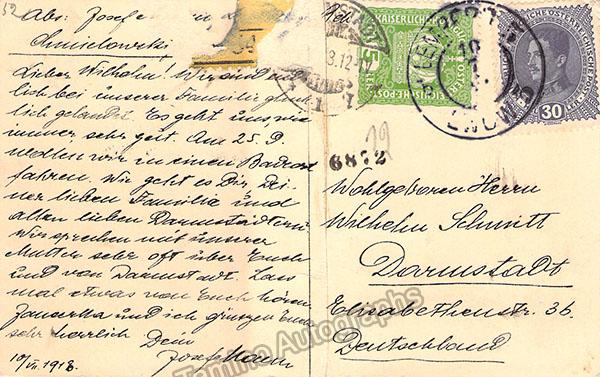 52
Abs: Josef
Chmielowski,
34
Lieber Wilhelm! Wir sind nun
lich bei unserer Familie glück
lich gelandet. Es geht uns wie
immer sehr gut. Am 25. 9.
wollen wir in einen Badeort
fahren. Wie geht es Dir, Dei-
ner lieben Familie und
allen lieben Darmstädtern
Wir sprechen mit unserer
Mutter sehr oft über Euch
und von Darmstadt. Lass
mal etwas von Euch hören
und ich grüssen Euch
sehr herzlich. Dein
Josef Mann
10/VII. 1918
KAISERLICHE KÖNIGLICHE ÖSTERR
REICHISCHE-POST
5 HELLER
KAISERLICHE KÖNIGLICHE ÖSTERREICHISCHE POST
30
LWOW
19
6872
Wohlgeboren Herrn
Wilhelm Schmitt
Darmstadt
Elisabethenstr. 36.
Deutschland
Tamino Autographs